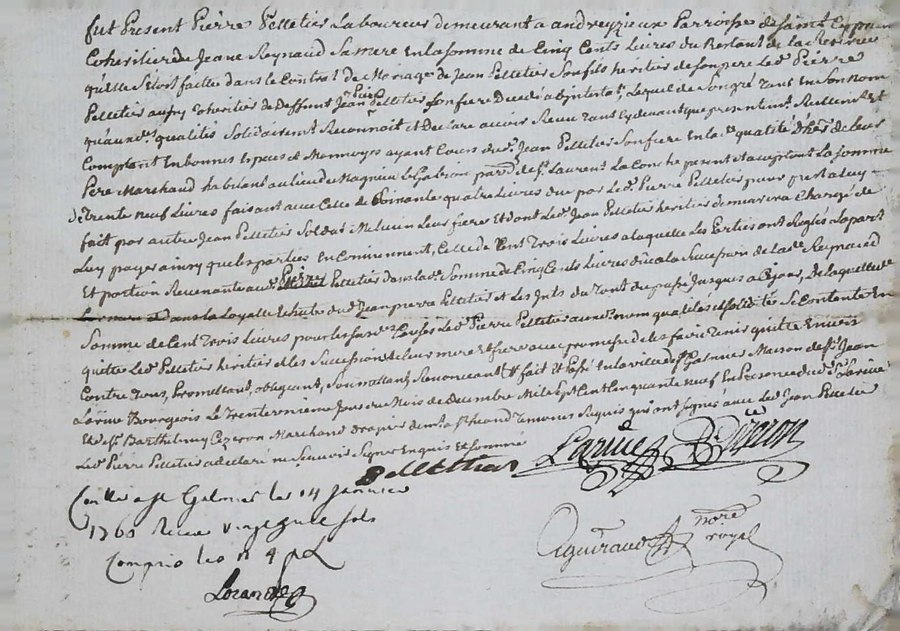 fut Present Pierre Pelletier Laboureur demeurant a andreyzieux Parroisse de saint Cyprien
Coheritier de Jeane Reynaud Sa mere En la somme de Cinq Cents Livres du Restant de la Reserve
quelle S'etoit faitte dans le Contrat de Mariage de Jean Pelletier Son fils heritier de Son pere Led. Pierre
Pelletier aussy Coheritier de Deffunt Jean Pierre Pelletier Son frere Decedé abintestat, Lequel de Son gré Tant En Son Nom
qu'aux d. qualités Solidairement Reconnoit et Declare avoir Receu Tant Cydevant que presentement Reellement Et
Comptant En bonnes Especes et Monnoyes ayant Cours dud. Jean Pelletier Son frere En lad. qualité d'her. de leur
Pere Marchand habitant au lieu de Magnieu Le Gabion par. de St. Laurent La Conche present et acceptant La somme
de trente neuf Livres faisant avec Celle de Soixante quatre Livres due par Led. Pierre Pelletier pour prest a luy
fait par autre Jean Pelletier Soldat Milicien Leur frere Et dont Led. Jean Pelletier heritier demeurera Chargé de
Luy payer ainsy que les parties En Conviennent, Celle de Cent Trois Livres a laquelle Les Parties ont Reglés La part
Et portion Revenante aud. Pierre Pelletier dans lad. Somme de Cinq Cents Livres de la Succession de lad. Reynaud
Sa mere Et dans La Loyalle Echute dud. Jean pierre Pelletier et Les Ints. du Tout du passé Jusques a Ce jour, De laquelle
Somme de Cent Trois Livres pour les Causes Led. Pierre Pelletier aux d. nom qualités et Solidité Se Contente En
quitte Led. Pelletier heritier et les Succession de leur mere Et frere avec promesse de les faire Tenir quitte Envers
Contre Tous, Promettant, obligeant, Soumettant, Renonceant &c fait et Passé En la ville de St. Galmier Maison de Sr. Jean
Larüe Bourgeois Le Trente unieme Jour du Mois de Decembre Mil Sept Cent Cinquante neuf En Presence dud. Sr. Larüe
Et de Sr. Barthelemy Marchand drapier dud. St. Rhand Temoins Requis qui ont Signés avec Led. Jean Pelletier
Led. Pierre Pelletier a declaré ne Sçavoir Signer Enquis Et Sommé
Pelletier Larüe
Conllé a St Galmier le 14 Janvier
1760 Receu vingt sols
Compris les 4 s p L
Aguiraud nore royal